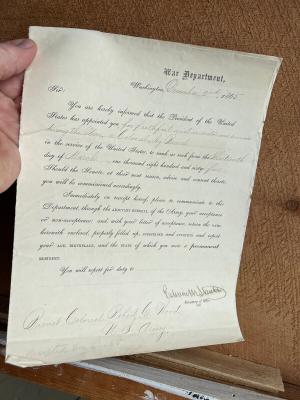 War Department,
Washington, December 2nd 1865
Sir:
You are hereby informed that the President of the United
States has appointed you, for faithful and meritorious services
during the War, a Colonel by Brevet
in the service of the United States, to rank as such from the thirteenth
day of March, one thousand eight hundred and sixty-five
Should the Senate, at their next session, advise and consent thereto,
you will be commissioned accordingly.
Immediately on receipt hereof, please to communicate to this
Department, through the ADJUTANT GENERAL of the Army, your acceptance
or non-acceptance; and, with your letter of acceptance, return the oath
herewith enclosed, properly filled up, SUBSCRIBED and ATTESTED, and report
your AGE, BIRTHPLACE, and the STATE of which you were a permanent
RESIDENT.
You will report for duty to
Edwin M Stanton
Secretary of War.
Brevet Colonel Robert C. Wood
U. S. Army